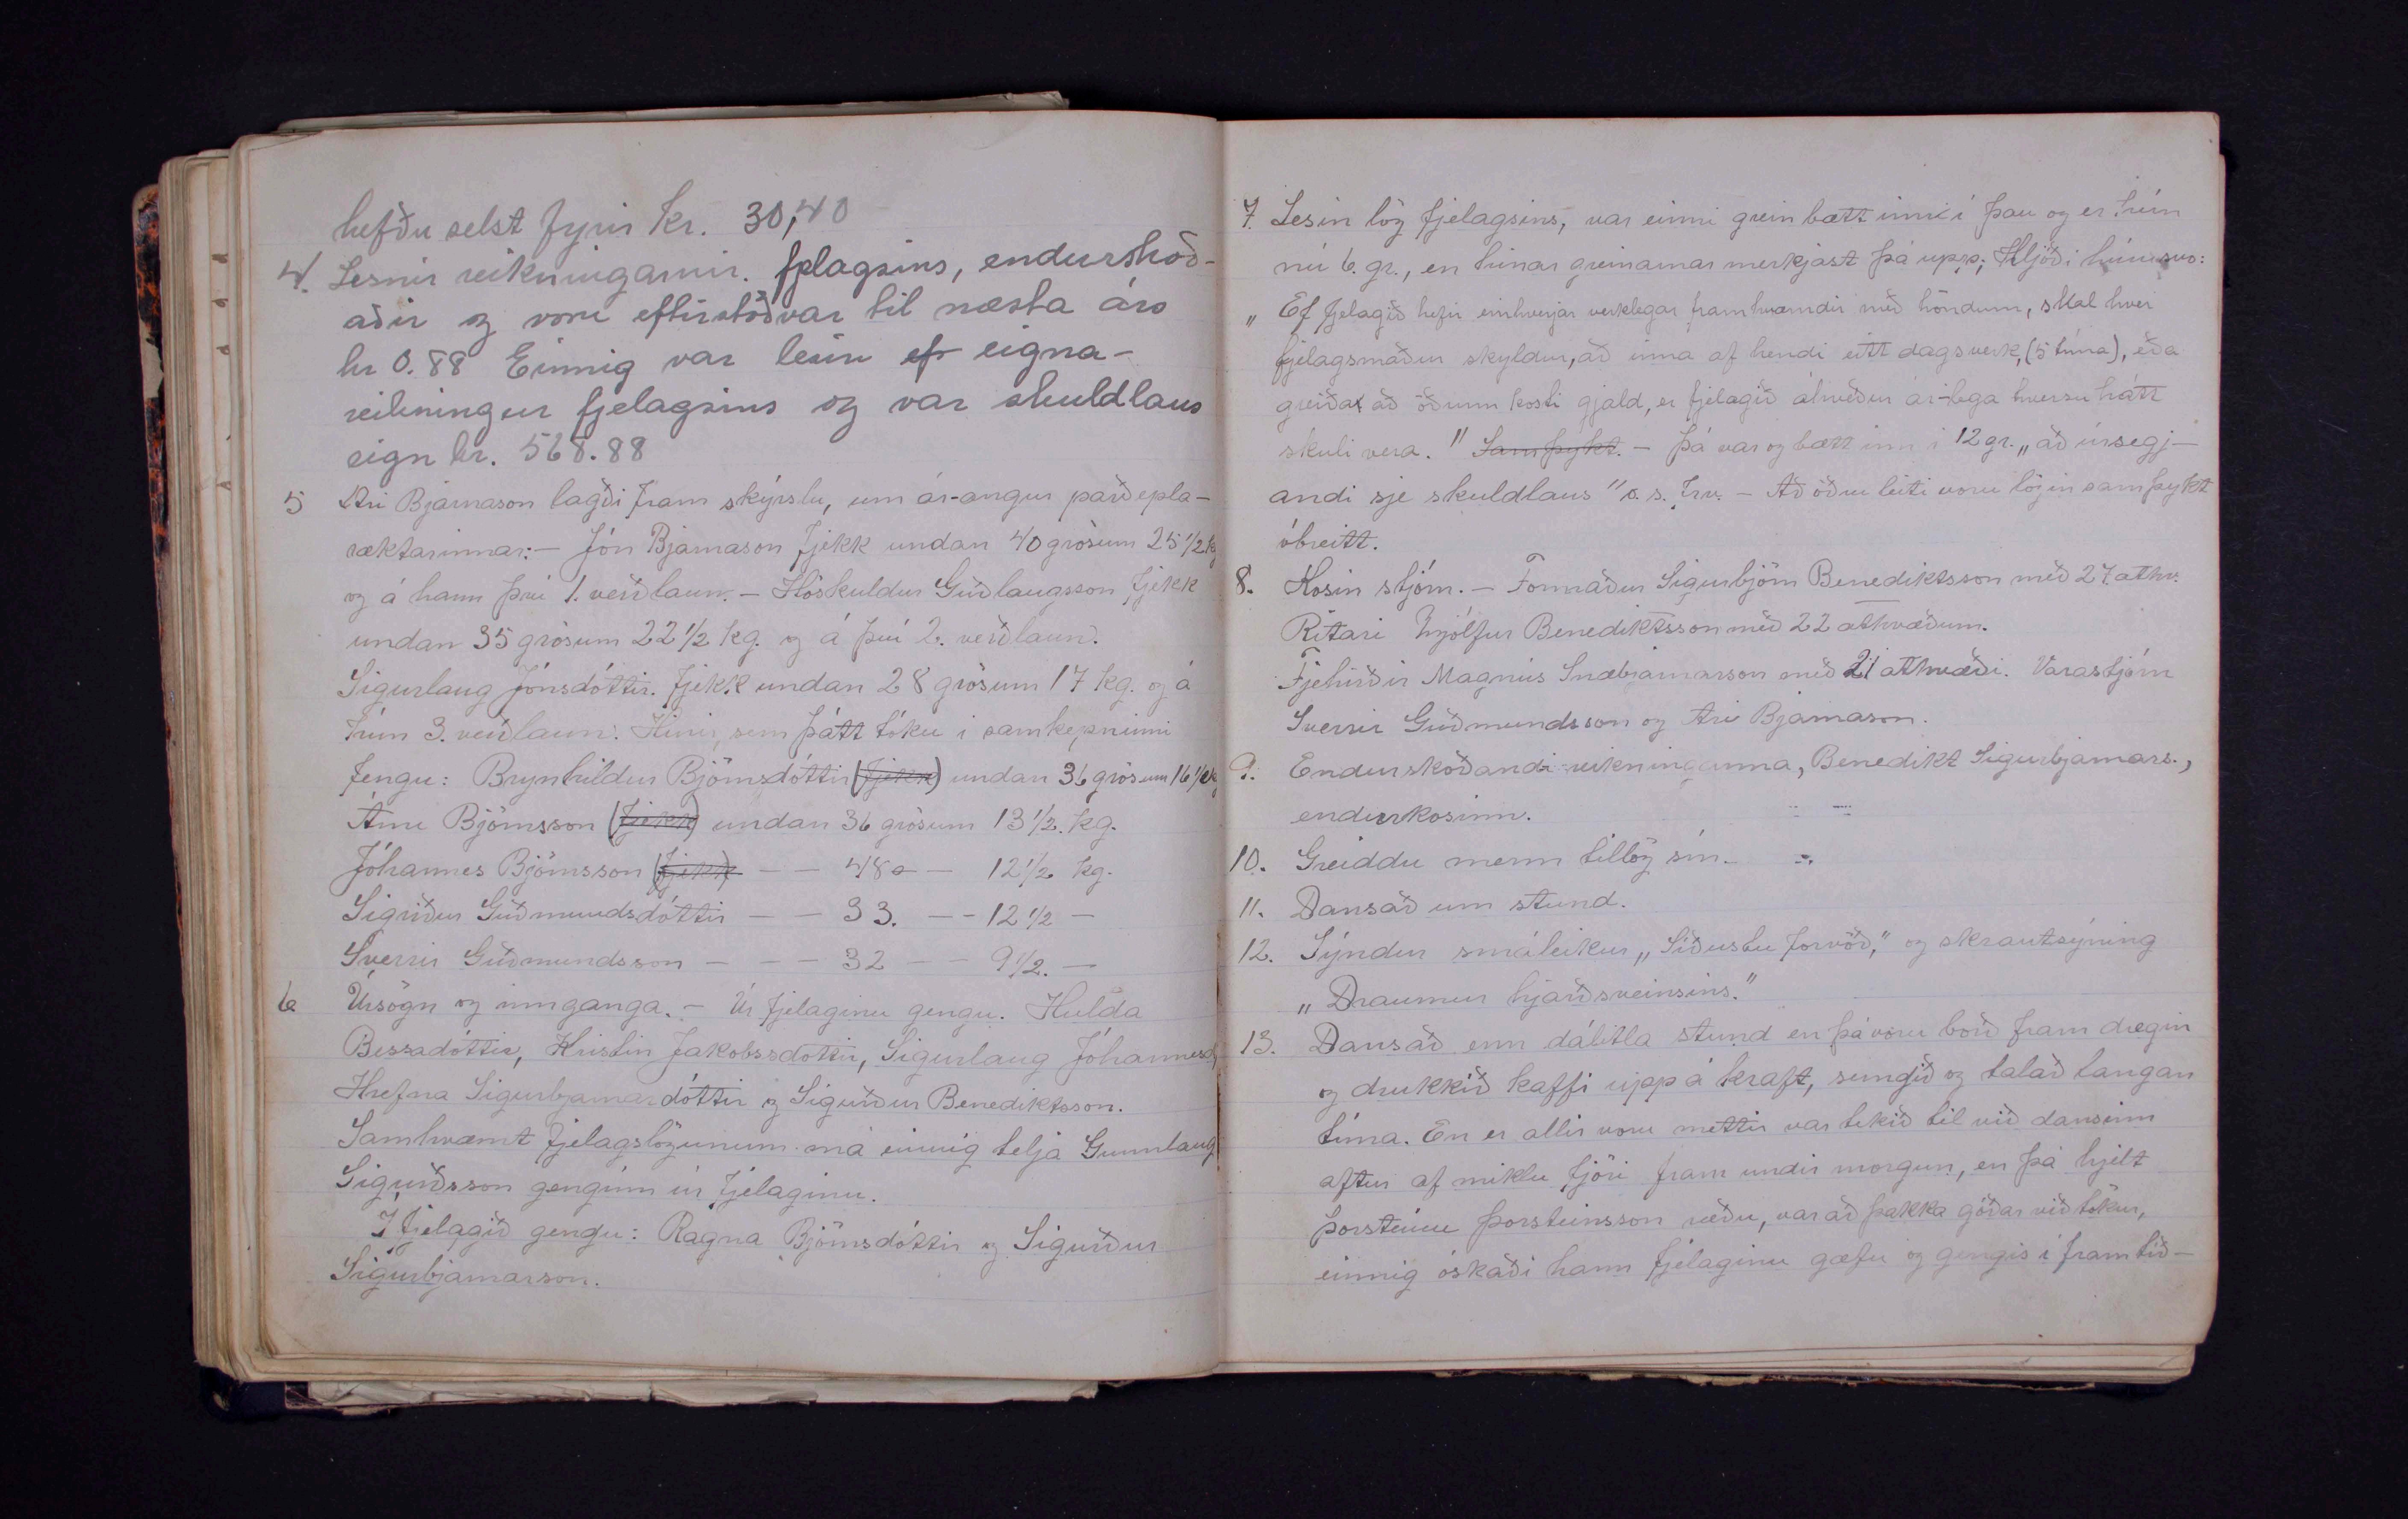 hefðu selst fyrir kr. 30,40
4. Lesnir reikningarnir. fjelagsins, endurskoð-
aðir og voru eftirstöðvar til næsta árs
kr 0.88 Einnig var lesin ef eigna-
reikningur fjelagsins og var skuldlaus
eign kr. 568.88
5 Ari Bjarnason lagði fram skýrslu, um ár-angur parðepla-
ræktarinnar:- Jón Bjarnason fjekk undan 40 grösum 25 1/2 kg
og á hann því 1. verðlaun. - Höskuldur Guðlaugsson fjekk
undan 35 grösum 22 1/2 kg. og á því 2. verðlaun.
Sigurlaug Jónsdóttir. fjekk undan 28 grösum 17 kg. og á
hún 3. verðlaun. Hinir, sem þátt tóku i samkepninni
fengu: Brynhildur Björnsdóttir (fjekk) undan 36 grösum 16 1/2 kg
Árni Björnsson (fjekk) undan 36 grösum 13 1/2. kg.
Jóhannes Björnsson (fjekk) - - 48 - - 12 1/2 kg.
Sigriður Guðmundsdóttir - - 33. - - 12 1/2 -
Sverrir Guðmundsson - - - 32 - - 9 1/2. -
6 Úrsögn og innganga. - Úr fjelaginu gengu. Hulda
Bessadóttir, Kristin Jakobssdóttir, Sigurlaug Jóhannesd,
Hrefna Sigurbjarnardóttir og Sigurður Benediktsson.
Samkvæmt fjelagslögunum má einnig telja Gunnlaug
Sigurðsson genginn úr fjelaginu.
Í fjelagið gengu: Ragna Björnsdóttir og Sigurður
Sigurbjarnarson.
7. Lesin lög fjelagsins, var einni grein bætt inn i þau og er hún
nú 6. gr., en hinar greinarnar merkjast þá upp; Hljóði hún svo:
„ Ef fjelagið hefir einhverjar verklegar framkvæmdir með höndum, skal hver
fjelagsmaður skyldur, að inna af hendi eitt dagsverk, (5 tíma), eða
greiða að öðrum kosti gjald, er fjelagið ákveður ár-lega hversu hátt
skuli vera." Samþykt. - Þá var og bætt inn i 12 gr. „ að úrsegj-
andi sje skuldlaus" o. s. frv. - Að öðru leiti voru lögin samþykt
óbreitt.
8. Kosin stjórn. - Formaður Sigurbjörn Benediktsson með 27. atkv.
Ritari Ingólfur Benediktsson með 22 atkvæðum.
Fjehirðir Magnús Snæbjarnarson með 21 atkvæði. Varastjórn
Sverrir Guðmundsson og Ari Bjarnason.
9. Endurskoðandi reikninganna, Benedikt Sigurbjarnars.,
endurkosinn.
10. Greiddu menn tillög sín.
11. Dansað um stund.
12. Sýndur smáleikur „Siðustu forvöð," og skrautsýning
„Draumur hjarðsveinsins."
13. Dansað enn dálitla stund en þá voru borð fram dregin
og drukkið kaffi upp á kraft, sungið og talað langan
tíma. En er allir voru mettir var tekið til við dansinn
aftur af miklu fjöri fram undir morgun, en þá hjelt
Þorsteinn Þorsteinsson ræðu, var að þakka góðar viðtökur,
einnig óskaði hann fjelaginu gæfu og gengis í framtið-